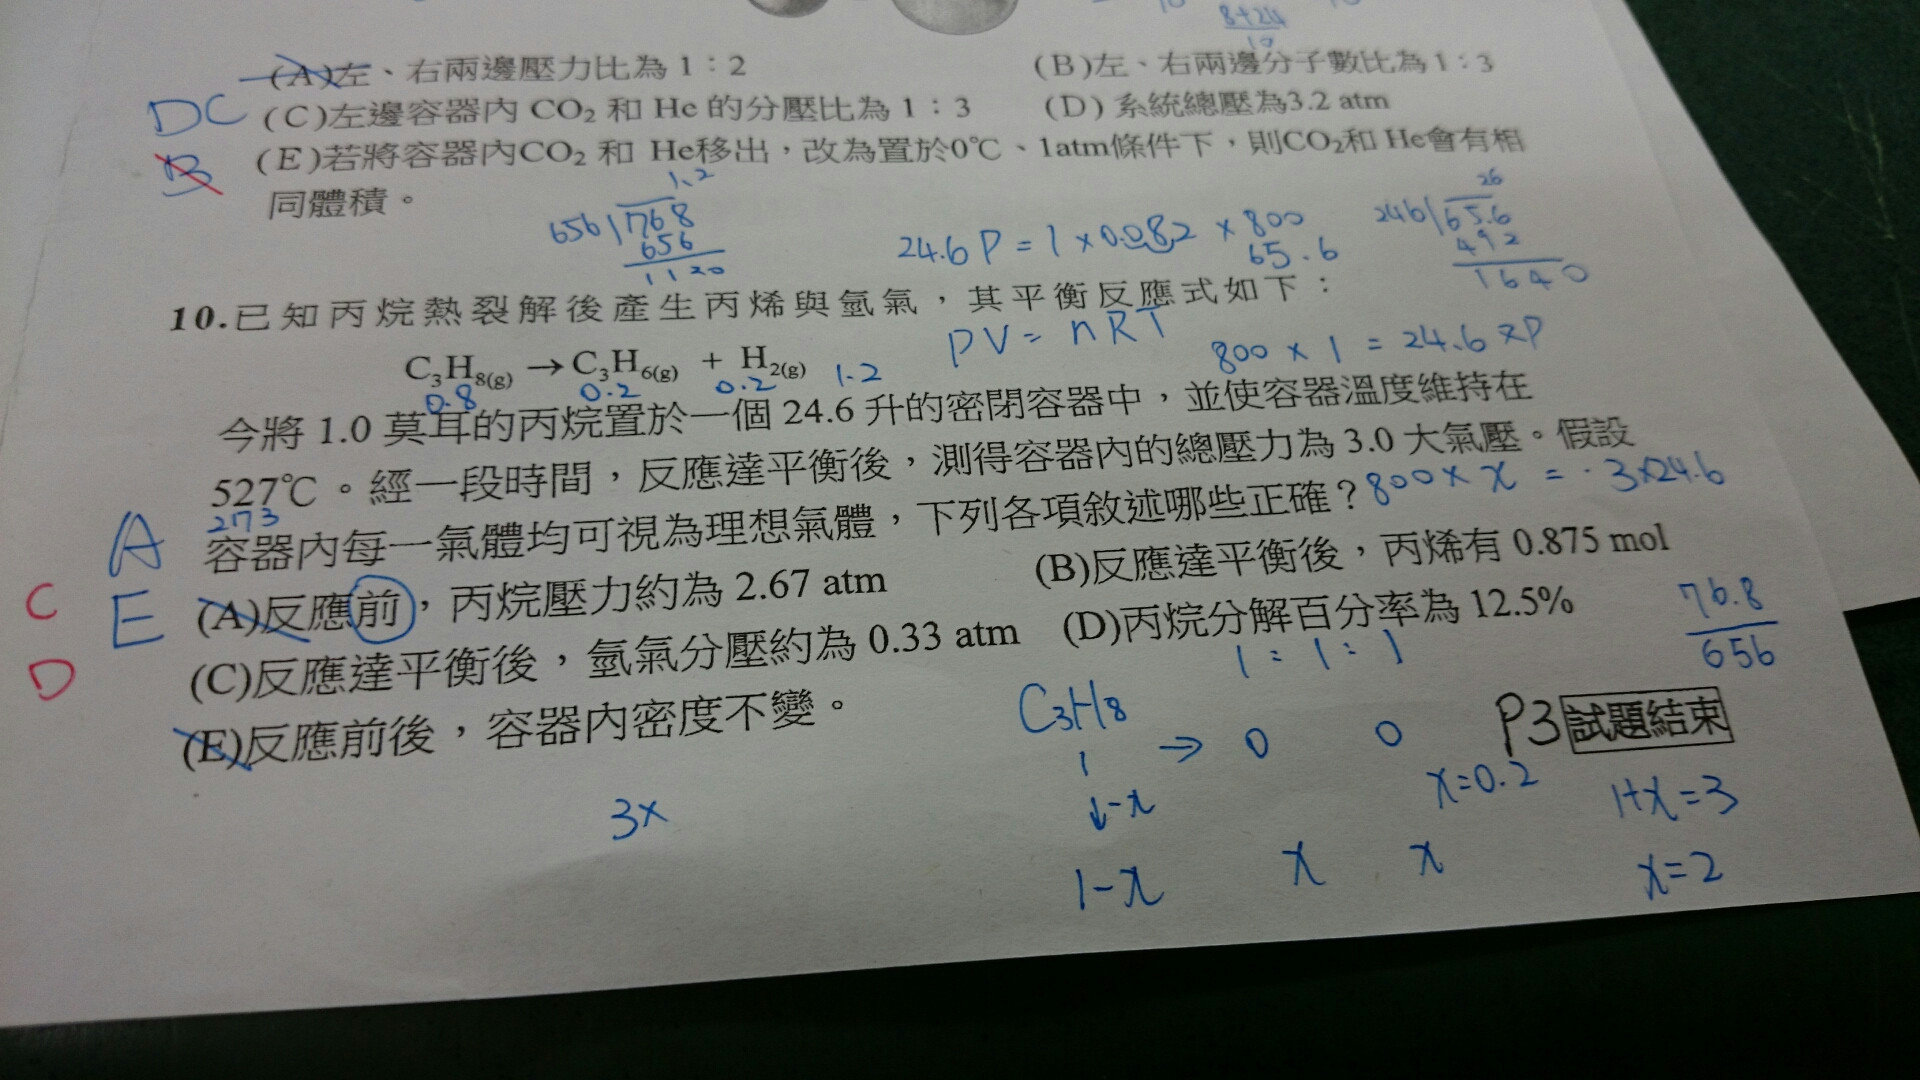 8+24
10
(A)左、右兩邊壓力比為 1：2 (B)左、右兩邊分子數比為 1：3
DC (C)左邊容器內 CO₂ 和 He 的分壓比為 1：3 (D) 系統總壓為3.2 atm
B (E)若將容器內CO₂ 和 He移出，改為置於0℃、1atm條件下，則CO₂和 He會有相
同體積。
1.2
656 768
656
1120
24.6 P = 1 × 0.082 × 800
65.6
26
246 65.6
492
1640
10.已知丙烷熱裂解後產生丙烯與氫氣，其平衡反應式如下：
PV = nRT
C₃H₈(g) → C₃H₆(g) + H₂(g) 1.2
0.8 0.2 0.2
800 × 1 = 24.6 × P
今將 1.0 莫耳的丙烷置於一個 24.6 升的密閉容器中，並使容器溫度維持在
527℃。經一段時間，反應達平衡後，測得容器內的總壓力為 3.0 大氣壓。假設
273
容器內每一氣體均可視為理想氣體，下列各項敘述哪些正確？ 800 × x = 3×24.6
A
E
C
D
(A)反應前，丙烷壓力約為 2.67 atm (B)反應達平衡後，丙烯有 0.875 mol
(C)反應達平衡後，氫氣分壓約為 0.33 atm (D)丙烷分解百分率為 12.5%
(E)反應前後，容器內密度不變。
1 : 1 : 1
76.8
656
C₃H₈
P3 試題結束
1 → 0 0
-x
x=0.2
1+x=3
3x
1-x x x
x=2